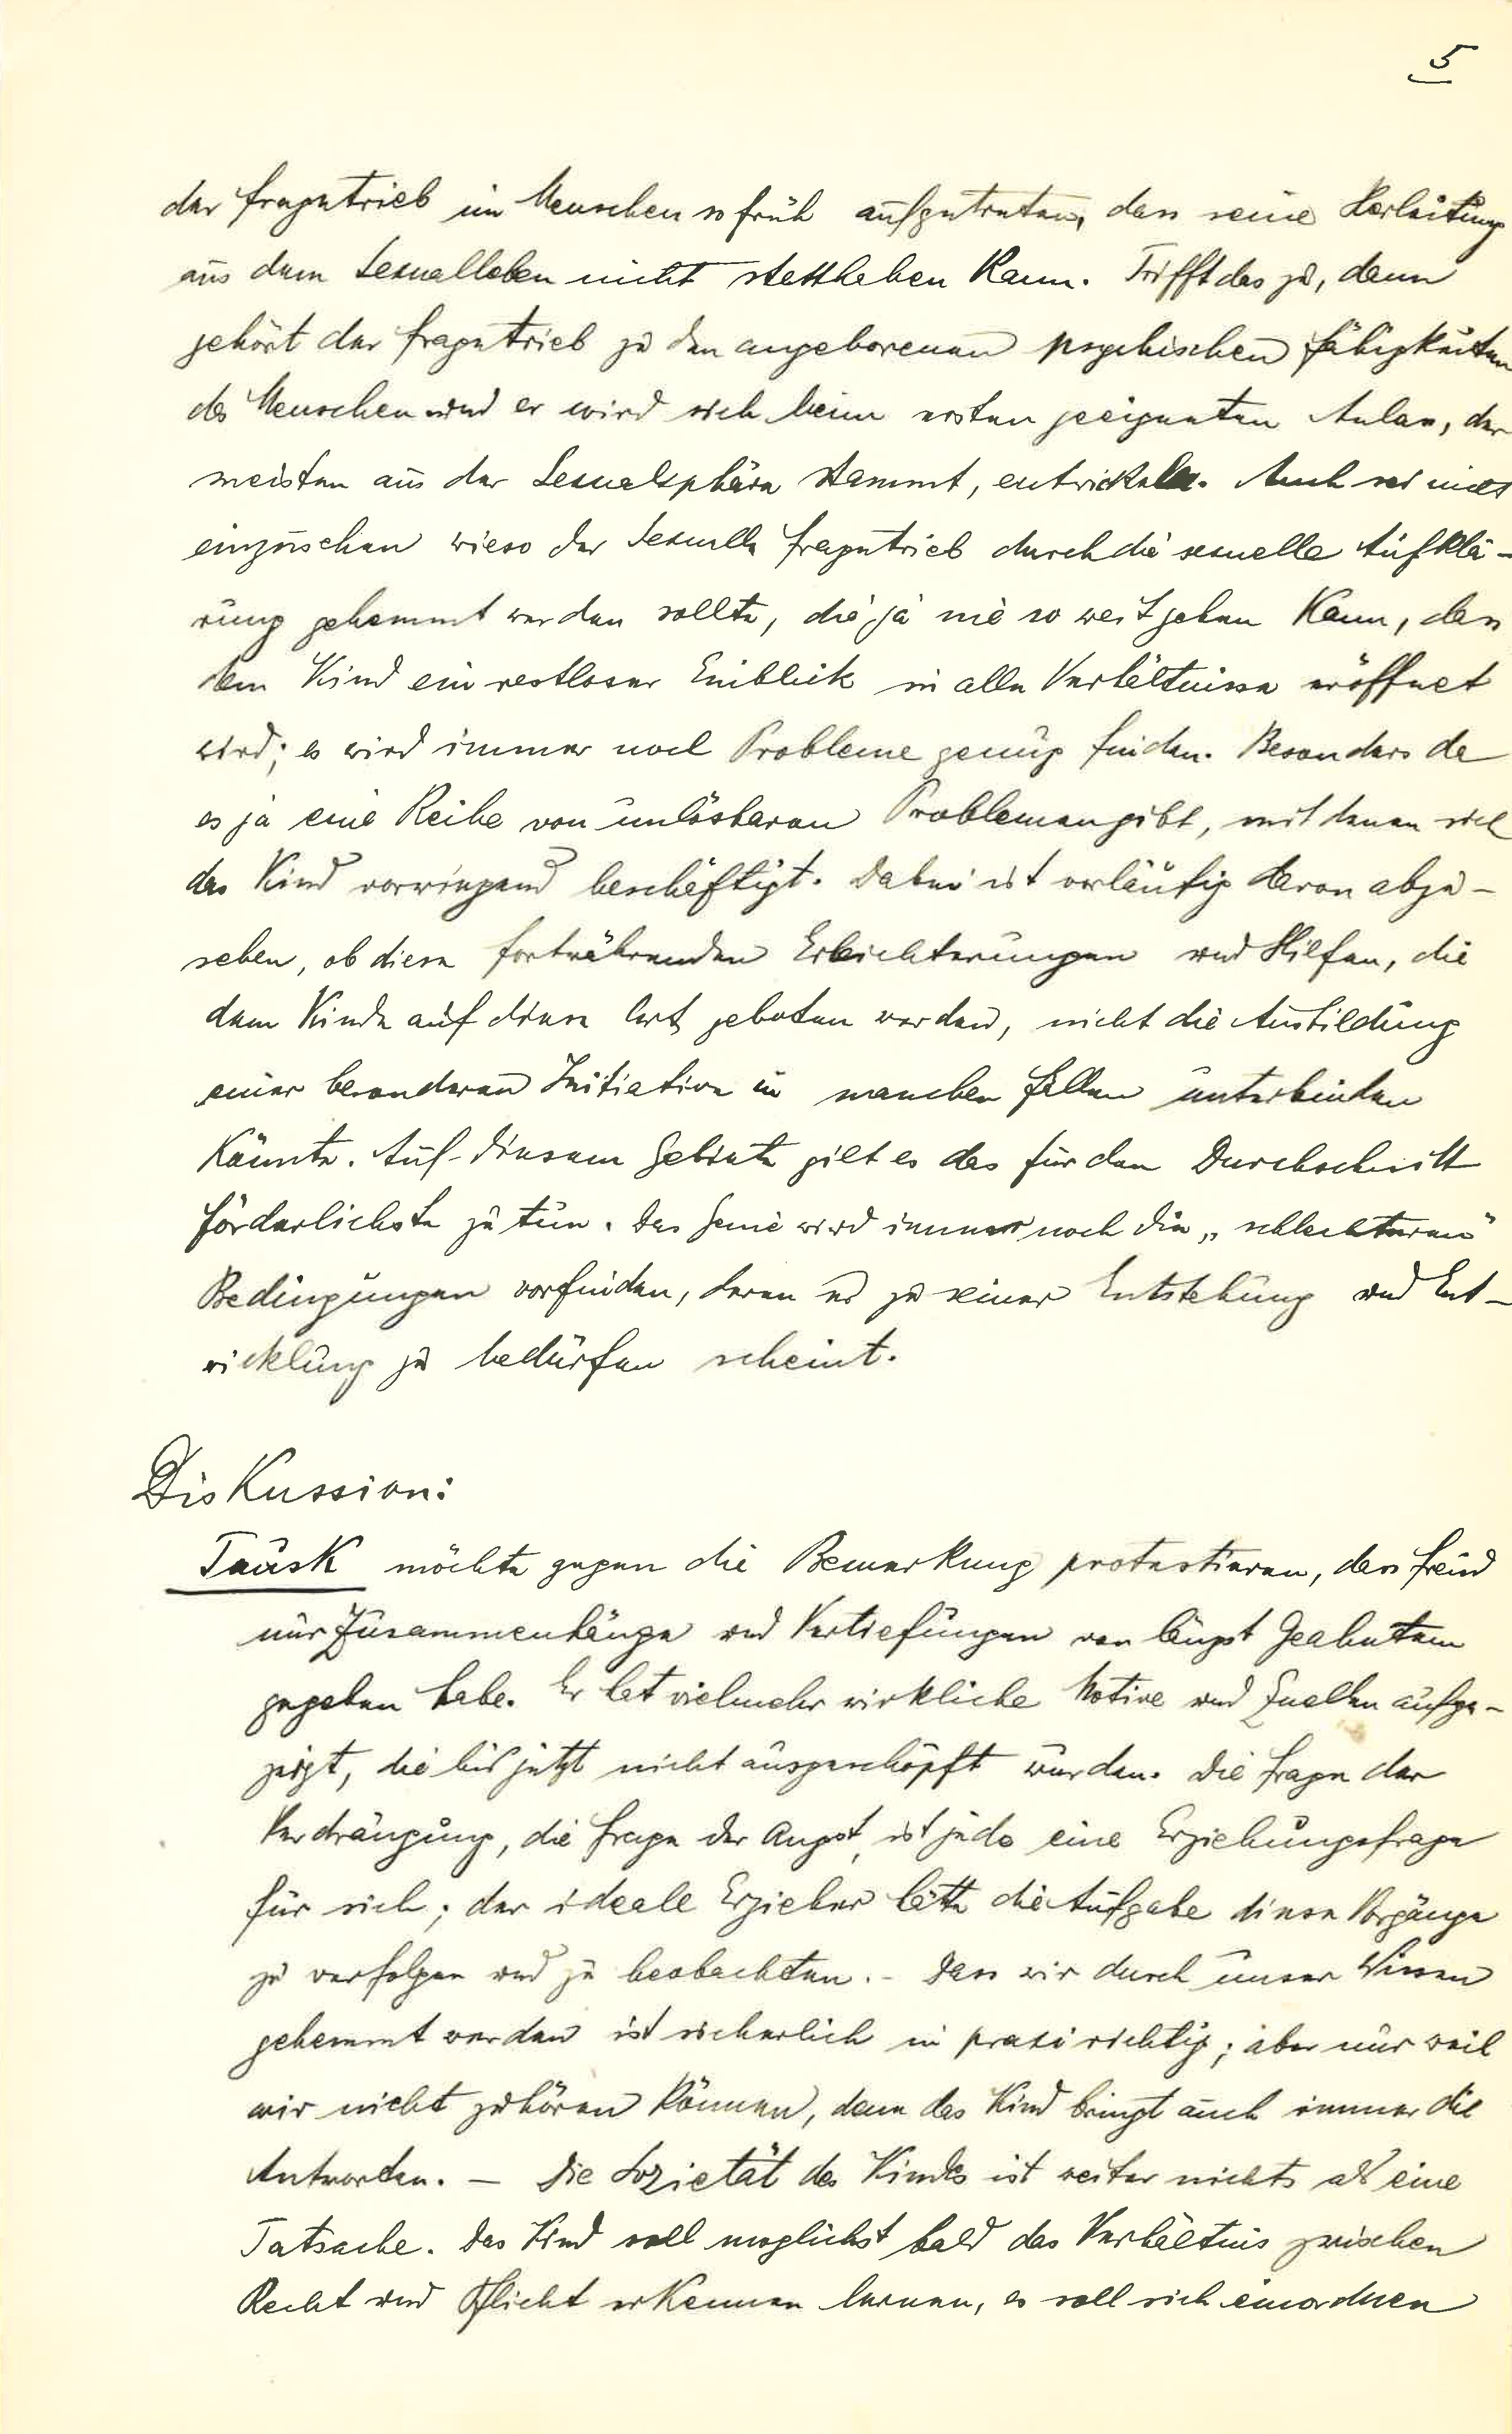 5
der Fragetrieb im Menschen so früh aufgetreten, dass seine Herleitung
aus dem Sexualleben nicht statthaben kann. Trifft das zu, dann
gehört der Fragetrieb zu den angeborenen psychischen Fähigkeiten
des Menschen und er wird sich beim ersten geeigneten Anlass, der
meisten aus der Sexualsphäre stammt, entwickeln. Auch sei nicht
einzusehen wieso der sexuelle Fragetrieb durch die sexuelle Aufklä-
rung gehemmt werden sollte, die ja nie so weit gehen kann, dass
dem Kind ein restloser Einblick in alle Verhältnisse eröffnet
wird; es wird immer noch Probleme genug finden. Besonders da
es ja eine Reihe von unlösbaren Problemen gibt, mit denen sich
das Kind vorwiegend beschäftigt. Dabei ist vorläufig davon abzu-
sehen, ob diese fortwährenden Erleichterungen und Hilfen, die
dem Kinde auf diese Art geboten werden, nicht die Ausbildung
einer besonderen Initiative in manchen Fällen unterbinden
könnte. Auf diesem Gebiete gilt es das für den Durchschnitt
förderlichste zu tun. Das Genie wird immer noch die „schlechteren"
Bedingungen vorfinden, deren es zu seiner Entstehung und Ent-
wicklung zu bedürfen scheint.
Diskussion:
Tausk möchte gegen die Bemerkung protestieren, dass Freud
nur Zusammenhänge und Vertiefungen von längst Geahntem
gegeben habe. Er hat vielmehr wirkliche Motive und Quellen aufge-
zeigt, die bis jetzt nicht ausgeschöpft wurden. Die Frage der
Verdrängung, die Frage der Angst, ist jede eine Erziehungsfrage
für sich; der ideale Erzieher hätte die Aufgabe diese Vorgänge
zu verfolgen und zu beobachten. – Dass wir durch unser Wissen
gehemmt werden ist sicherlich in praxi richtig; aber nur weil
wir nicht zuhören können, denn das Kind bringt auch immer die
Antworten. – Die Sozietät des Kindes ist weiter nichts als eine
Tatsache. Das Kind soll möglichst bald das Verhältnis zwischen
Recht und Pflicht erkennen lernen, es soll sich einordnen